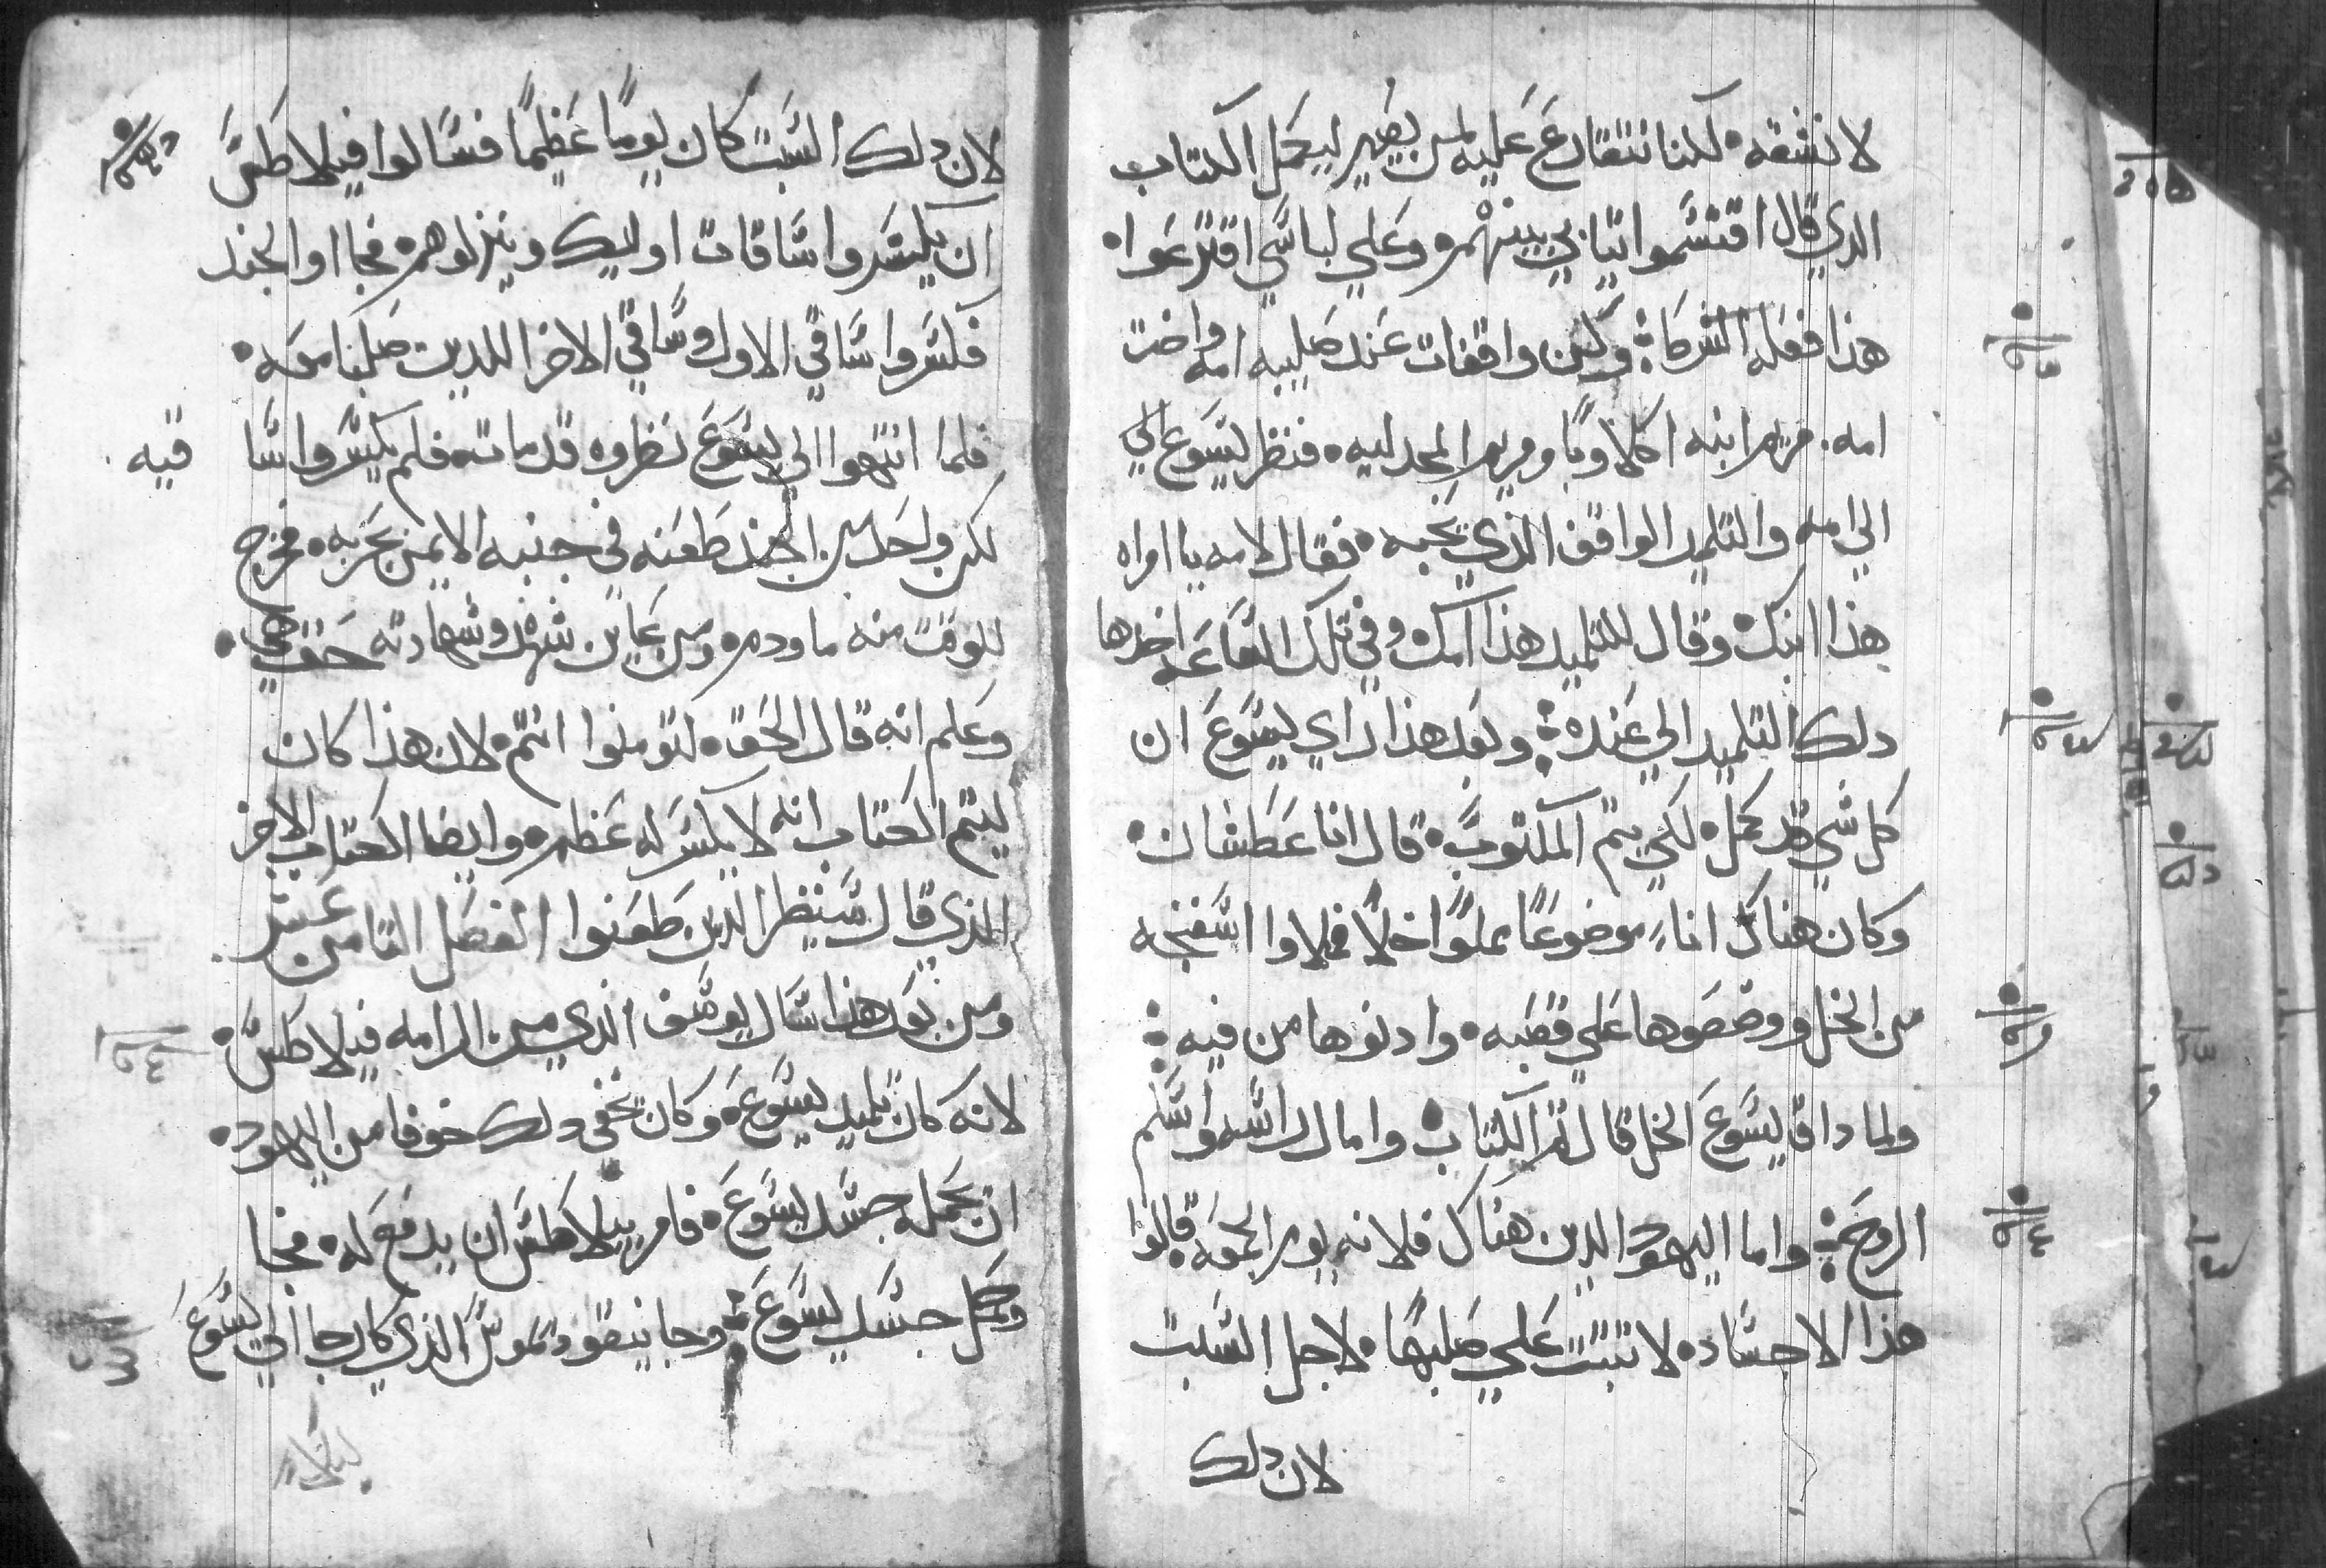 لا نشقه۰ لكننا نتقارع عليه لمن يصير ليكمل الكتاب
الدي قال اقتسموا تيابي بينهم۰ وعلي لباسي اقترعوا۰
هذا فعله الشرط وكن واقفات عند صليبه امه واخت
امه۰ مريم ابنه اكلاوبا ومريم المجدليه۰ فنظر يسوع الي
الي امه والتلميد الواقف الذي يحبه۰ فقال لامه يا امراه
هذا ابنك۰ وقال للتلميد هذا امك وفي تلك الساعه اخدها
دلك التلميد الي عنده؛ وبعد هذا راي يسوع ان
كل شي قد كمل۰ لكي يتم المكتوب۰ قال انا عطشان۰
وكان هناك اناءٍ موضوعًا مملوًا خلًا فملاوا اسفنجه
من الخل ووضعوها علي قصبه۰ وادنوها من فيه؛
ولما داق يسوع الخل قال تم الكتاب۰ وامال راسه واسلم
الروح؛ واما اليهود الدين هناك فلانه يوم الجمعه قالوا
هذا الاجساد۰ لا تبت علي صلبها۰ لاجل السبت
لان دلك
لان دلك السبت كان يومًا عظيمًا فسالوا فيلاطس
ان يكسروا ساقات اوليك وينزلوهم۰ فجااوا الجند
فكسروا ساقي الاول وساقي الاخر اللدين صلبا معه۰
فلما انتهوا الي يسوع نظروه قد مات۰ فلم يكسروا سا قيه
لكن واحد من الجند طعنه في جنبه الايمن بحربه۰ فخرج
للوقت منه ما ودم۰ ومن عاين شهد وشهادته حق هي۰
وعلم انه قال الحق۰ لتومنوا انتم۰ لان هذا كان
ليتم الكتاب انه لا يكسر له عظم۰ وايضا الكتاب الاخر
الذي قال سينظر الدين طعنوا الفصل التامن عشر
ومن بعد هذا سال يوسف الذي من الرامه فيلاطس۰
لانه كان تلميد يسوع۰ وكان يخفي دلك خوفا من اليهود۰
ان يحمل جسد يسوع۰ فامر بيلاطس ان يدفع له۰ فجا
وحمل جسد يسوع؛ وجا نيقوديموس الذي كان جا الي يسوع
ليلاً